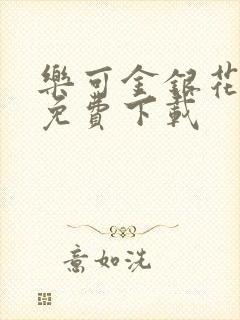 樂可金銀花
免費下載
意如洗